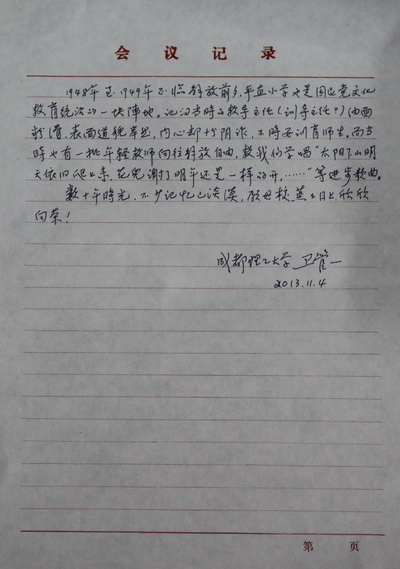 会议记录
1948年至1949年正临解放前夕，平直小学也是国民党文化
教育统治的一块阵地。记得当时的教导主任（训导主任？）
表面道貌岸然，内心却十分阴诈，不时要训育师生。而当
时也有一批年轻教师向往解放自由，教我们学唱“太阳下山明
天依旧爬上来，花儿谢了明年还是一样的开，……”等进步歌曲。
数十年时光，不少记忆已淡漠，愿母校蒸蒸日上欣欣
向荣！
成都理工大学 卫管一
2013.11.4
第 页